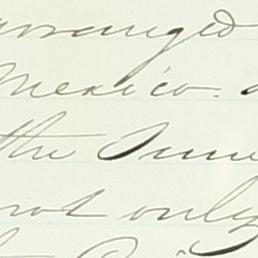 arranged
Mexico.
the
not only